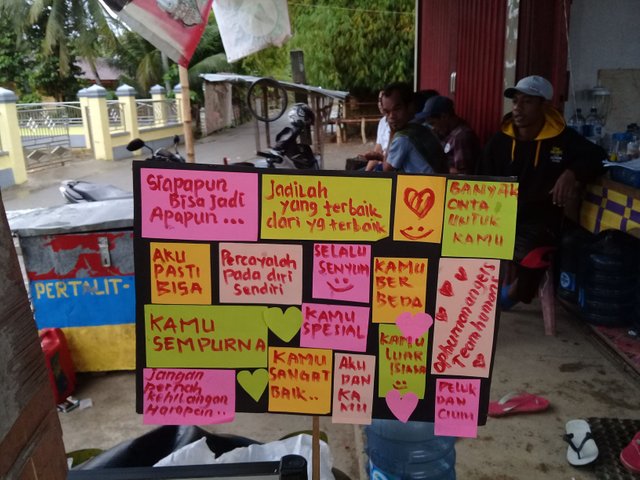 Siapapun
Bisa Jadi
Apapun...
Jadilah
yang terbaik
dari yg terbaik
BANYAK
CINTA
UNTUK
KAMU
AKU
PASTI
BISA
Percayalah
pada diri
sendiri
SELALU
SENYUM
KAMU
BER
BEDA
KAMU
SEMPURNA
KAMU
SPESIAL
KAMU
LUAR
BIASA
Jangan
pernah
kehilangan
Harapan..
KAMU
SANGAT
BAIK..
AKU
DAN
KAMU
PELUK
DAN
CIUM
PERTALIT-